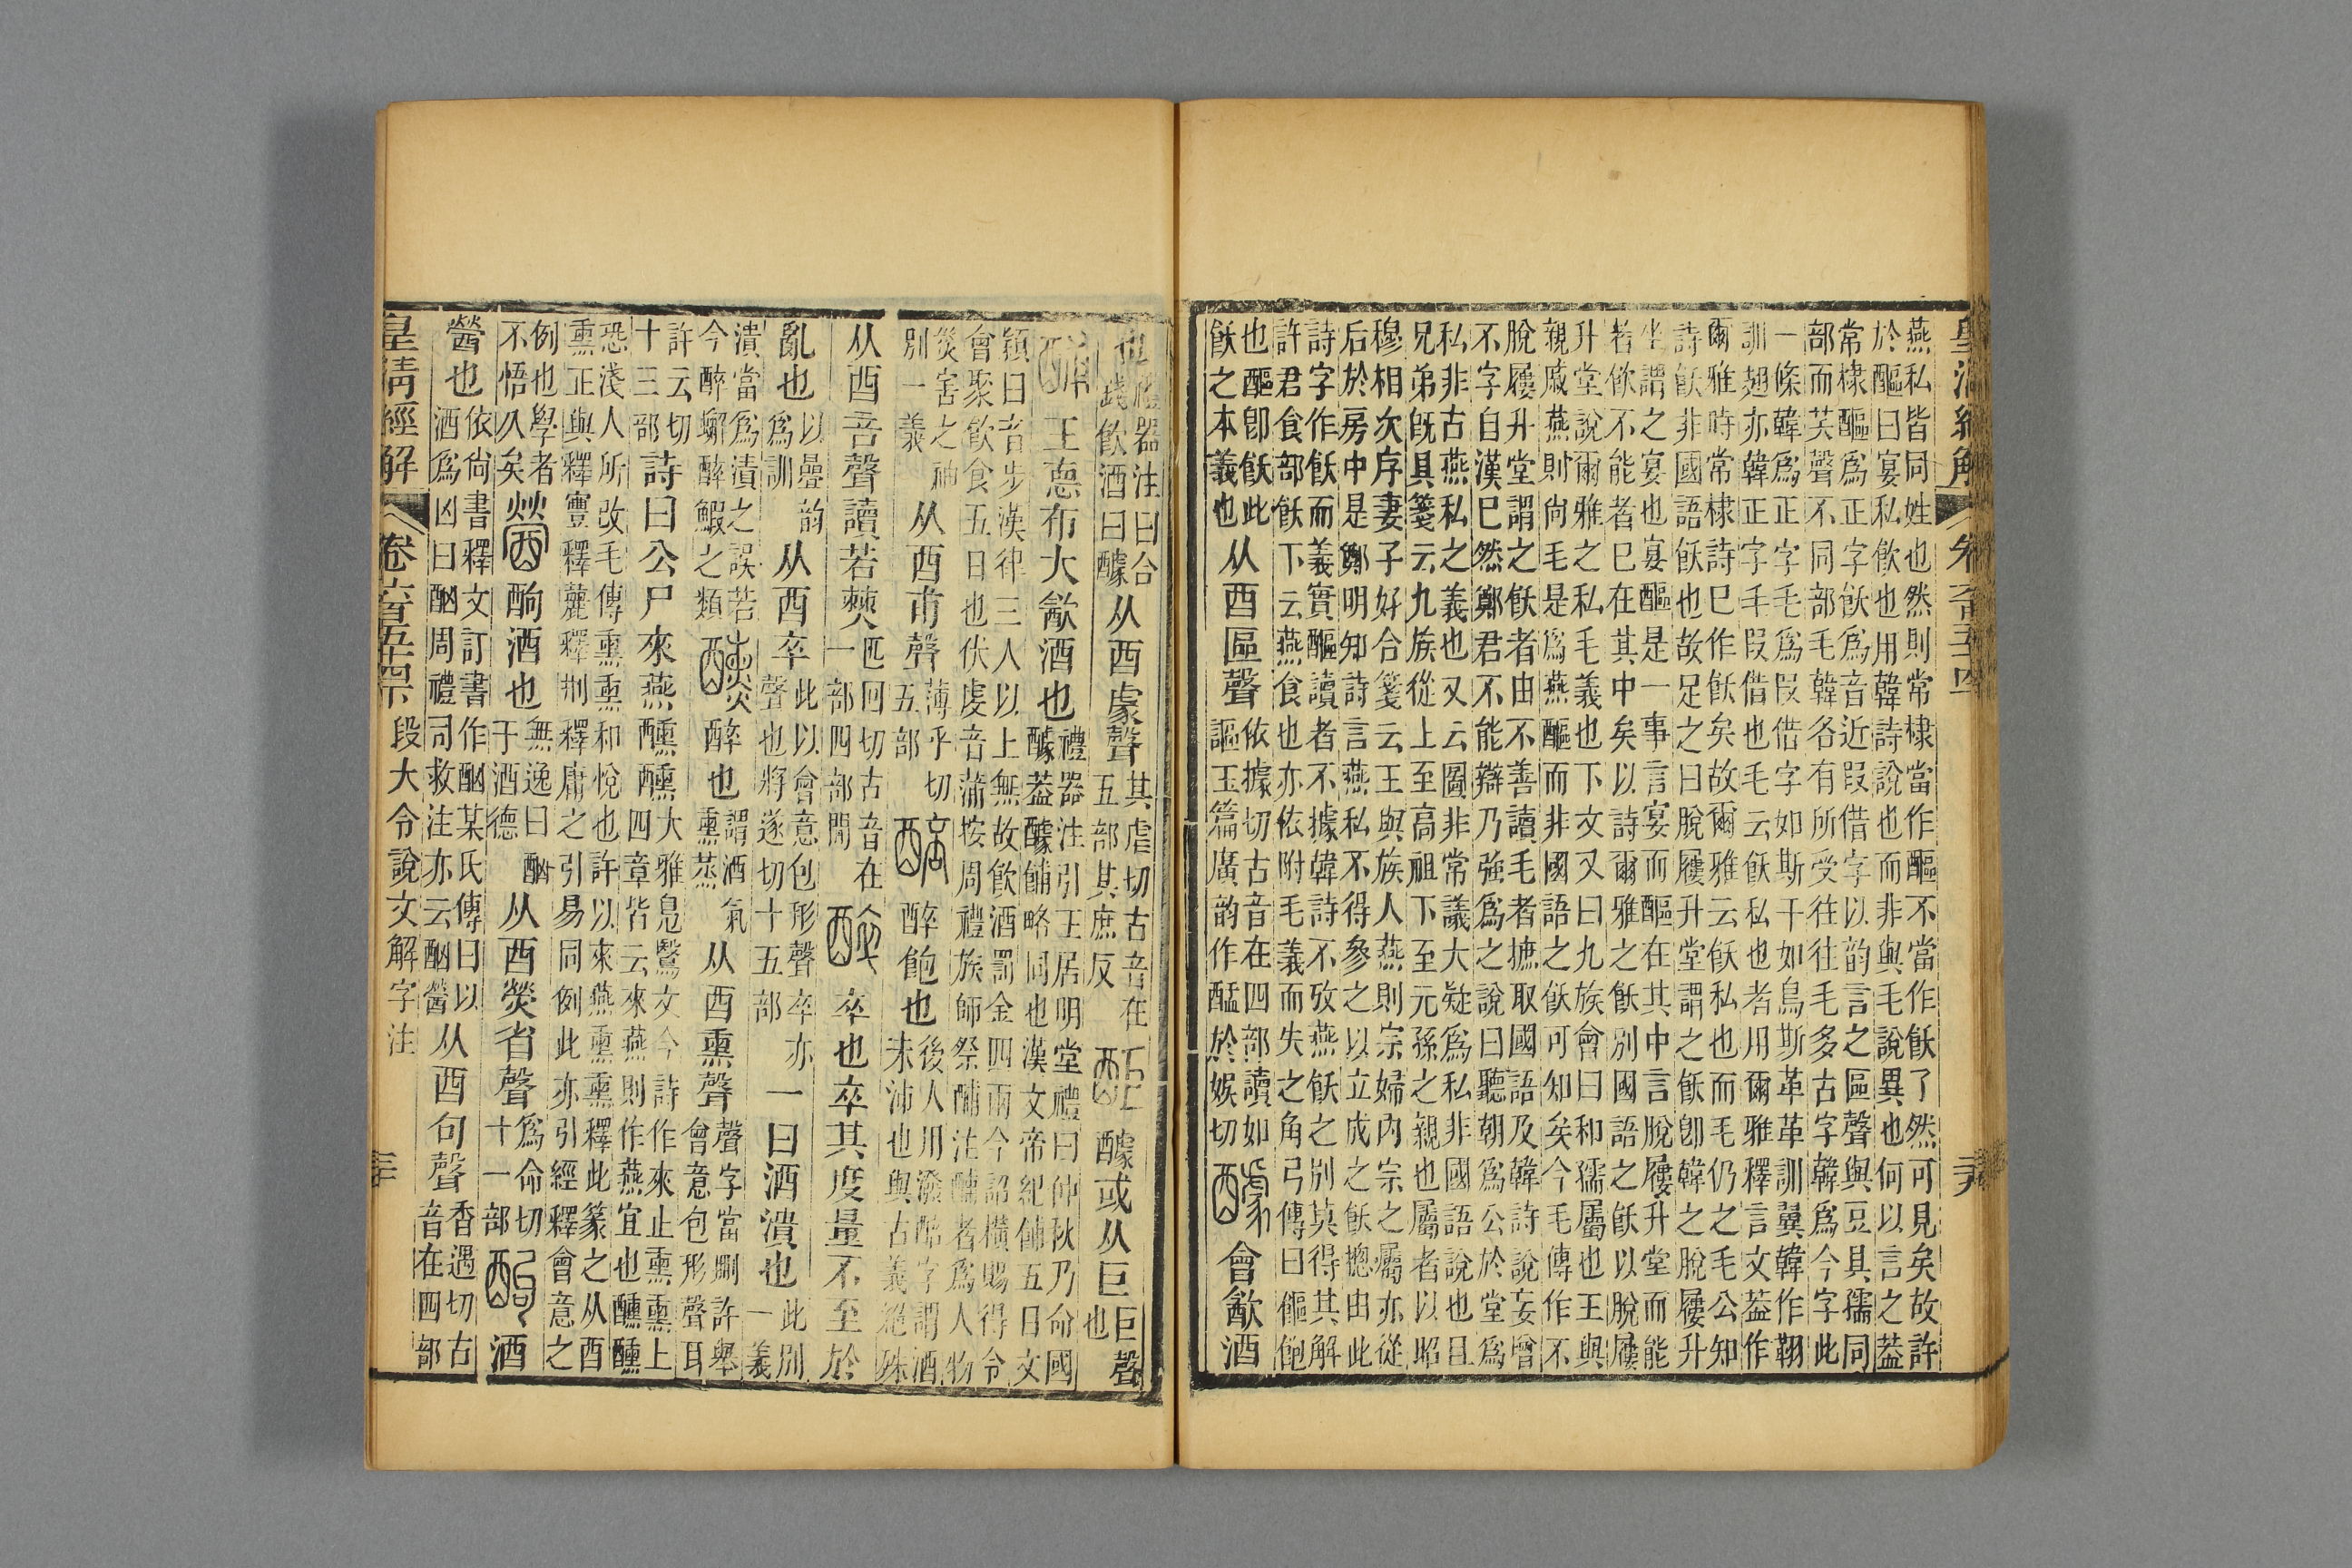 皇清經解
燕私皆同姓也然則常棣當作醧不當作飫了然可見矣故許
於醧曰宴私飲也用韓詩說也而非與毛說異也何以言之葢
常棣醧爲正字飫爲音近叚借字以韵言之區聲與豆具孺同
部而芺聲不同部毛韓各有所受往往毛多古字韓爲今字此
一條韓爲正字毛爲叚借字如斯干如鳥斯革革訓翼韓作䩹
訓翅亦韓正字毛叚借也毛云飫私也者用爾雅釋言文葢作
爾雅時常棣詩巳作飫矣故爾雅云飫私也而毛仍之毛公知
詩飫非國語飫也故足之曰脫屨升堂謂之飫卽韓之脫屨升
坐謂之宴也宴醧是一事言宴而醧在其中言脫屨升堂而能
若飲不能者巳在其中矣以詩爾雅之飫別國語之飫以脫屨
升堂說爾雅之私毛義也下文又曰九族會曰和孺屬也王與
親戚燕則尙毛是爲燕醧而非國語之飫可知矣今毛傳作不
脫屨升堂謂之飫者由不善讀毛者摭取國語及韓詩說妄增
不字自漢巳然鄭君不能辯乃強爲之說曰聽朝爲公於堂爲
私非古燕私之義也又云圖非常議大疑爲私非國語說也且
兄弟旣具箋云九族從上至高祖下至元孫之親也屬者以昭
穆相次序妻子好合箋云王與族人燕則宗婦內宗之屬亦從
后於房中是鄭明知詩言燕私不得參之以立成之飫摠由此
詩字作飫而義實醧讀者不據韓詩不攷燕飫之別莫得其解
許君食部飫下云燕食也亦依附毛義而失之角弓傳曰傴飽
也醧卽飫此飫之本義也从酉區聲依據切古音在四部讀如謳玉篇廣韵作䣱於娛切醵會歙酒
也禮器注曰合錢飲酒曰醵从酉豦聲其虐切古音在五部其庶反䣓醵或从巨巨聲也
酺王悳布大歙酒也禮器注引王居明堂禮曰仲秋乃命國醵葢醵餔略同也漢文帝紀餔五日文
穎曰音步漢律三人以上無故飲酒罰金四兩今詔橫賜得令
會聚飲食五日也伏虔音蒲按周禮族師祭酺注酺者爲人物
烖害之神別一義从酉甫聲薄乎切五部醅醉飽也後人用潑醅字謂酒未沛也與古義絕殊
从酉咅聲讀若僰匹回切古音在一部四部閒醉卒也卒其度量不至於
亂也以曡韵爲訓从酉卒此以會意包形聲卒亦聲也將遂切十五部一曰酒潰也此別一義
潰當爲漬之誤若今醉蠏醉鰕之類醺醉也謂酒氣熏蒸从酉熏聲聲字當刪許舉會意包形聲耳
許云切十三部詩曰公尸來燕醺醺大雅鳧鷖文今詩作來止熏熏上四章皆云來燕則作燕宜也醺醺
恐淺人所改毛傳熏熏和悅也許以來燕熏熏釋此篆之从酉
熏正與釋豐釋麓釋荆釋庸之引易同例此亦引經釋會意之
例也學者不悟久矣醟酌酒也無逸曰酗于酒德从酉熒省聲爲命切十一部酌酒
醟也依尙書釋文訂書作酗某氏傳曰以酒爲凶曰酗周禮司救注亦云酗醟从酉句聲香遇切古音在四部
皇清經解 卷六百五十四下 段大令說文解字注 三十